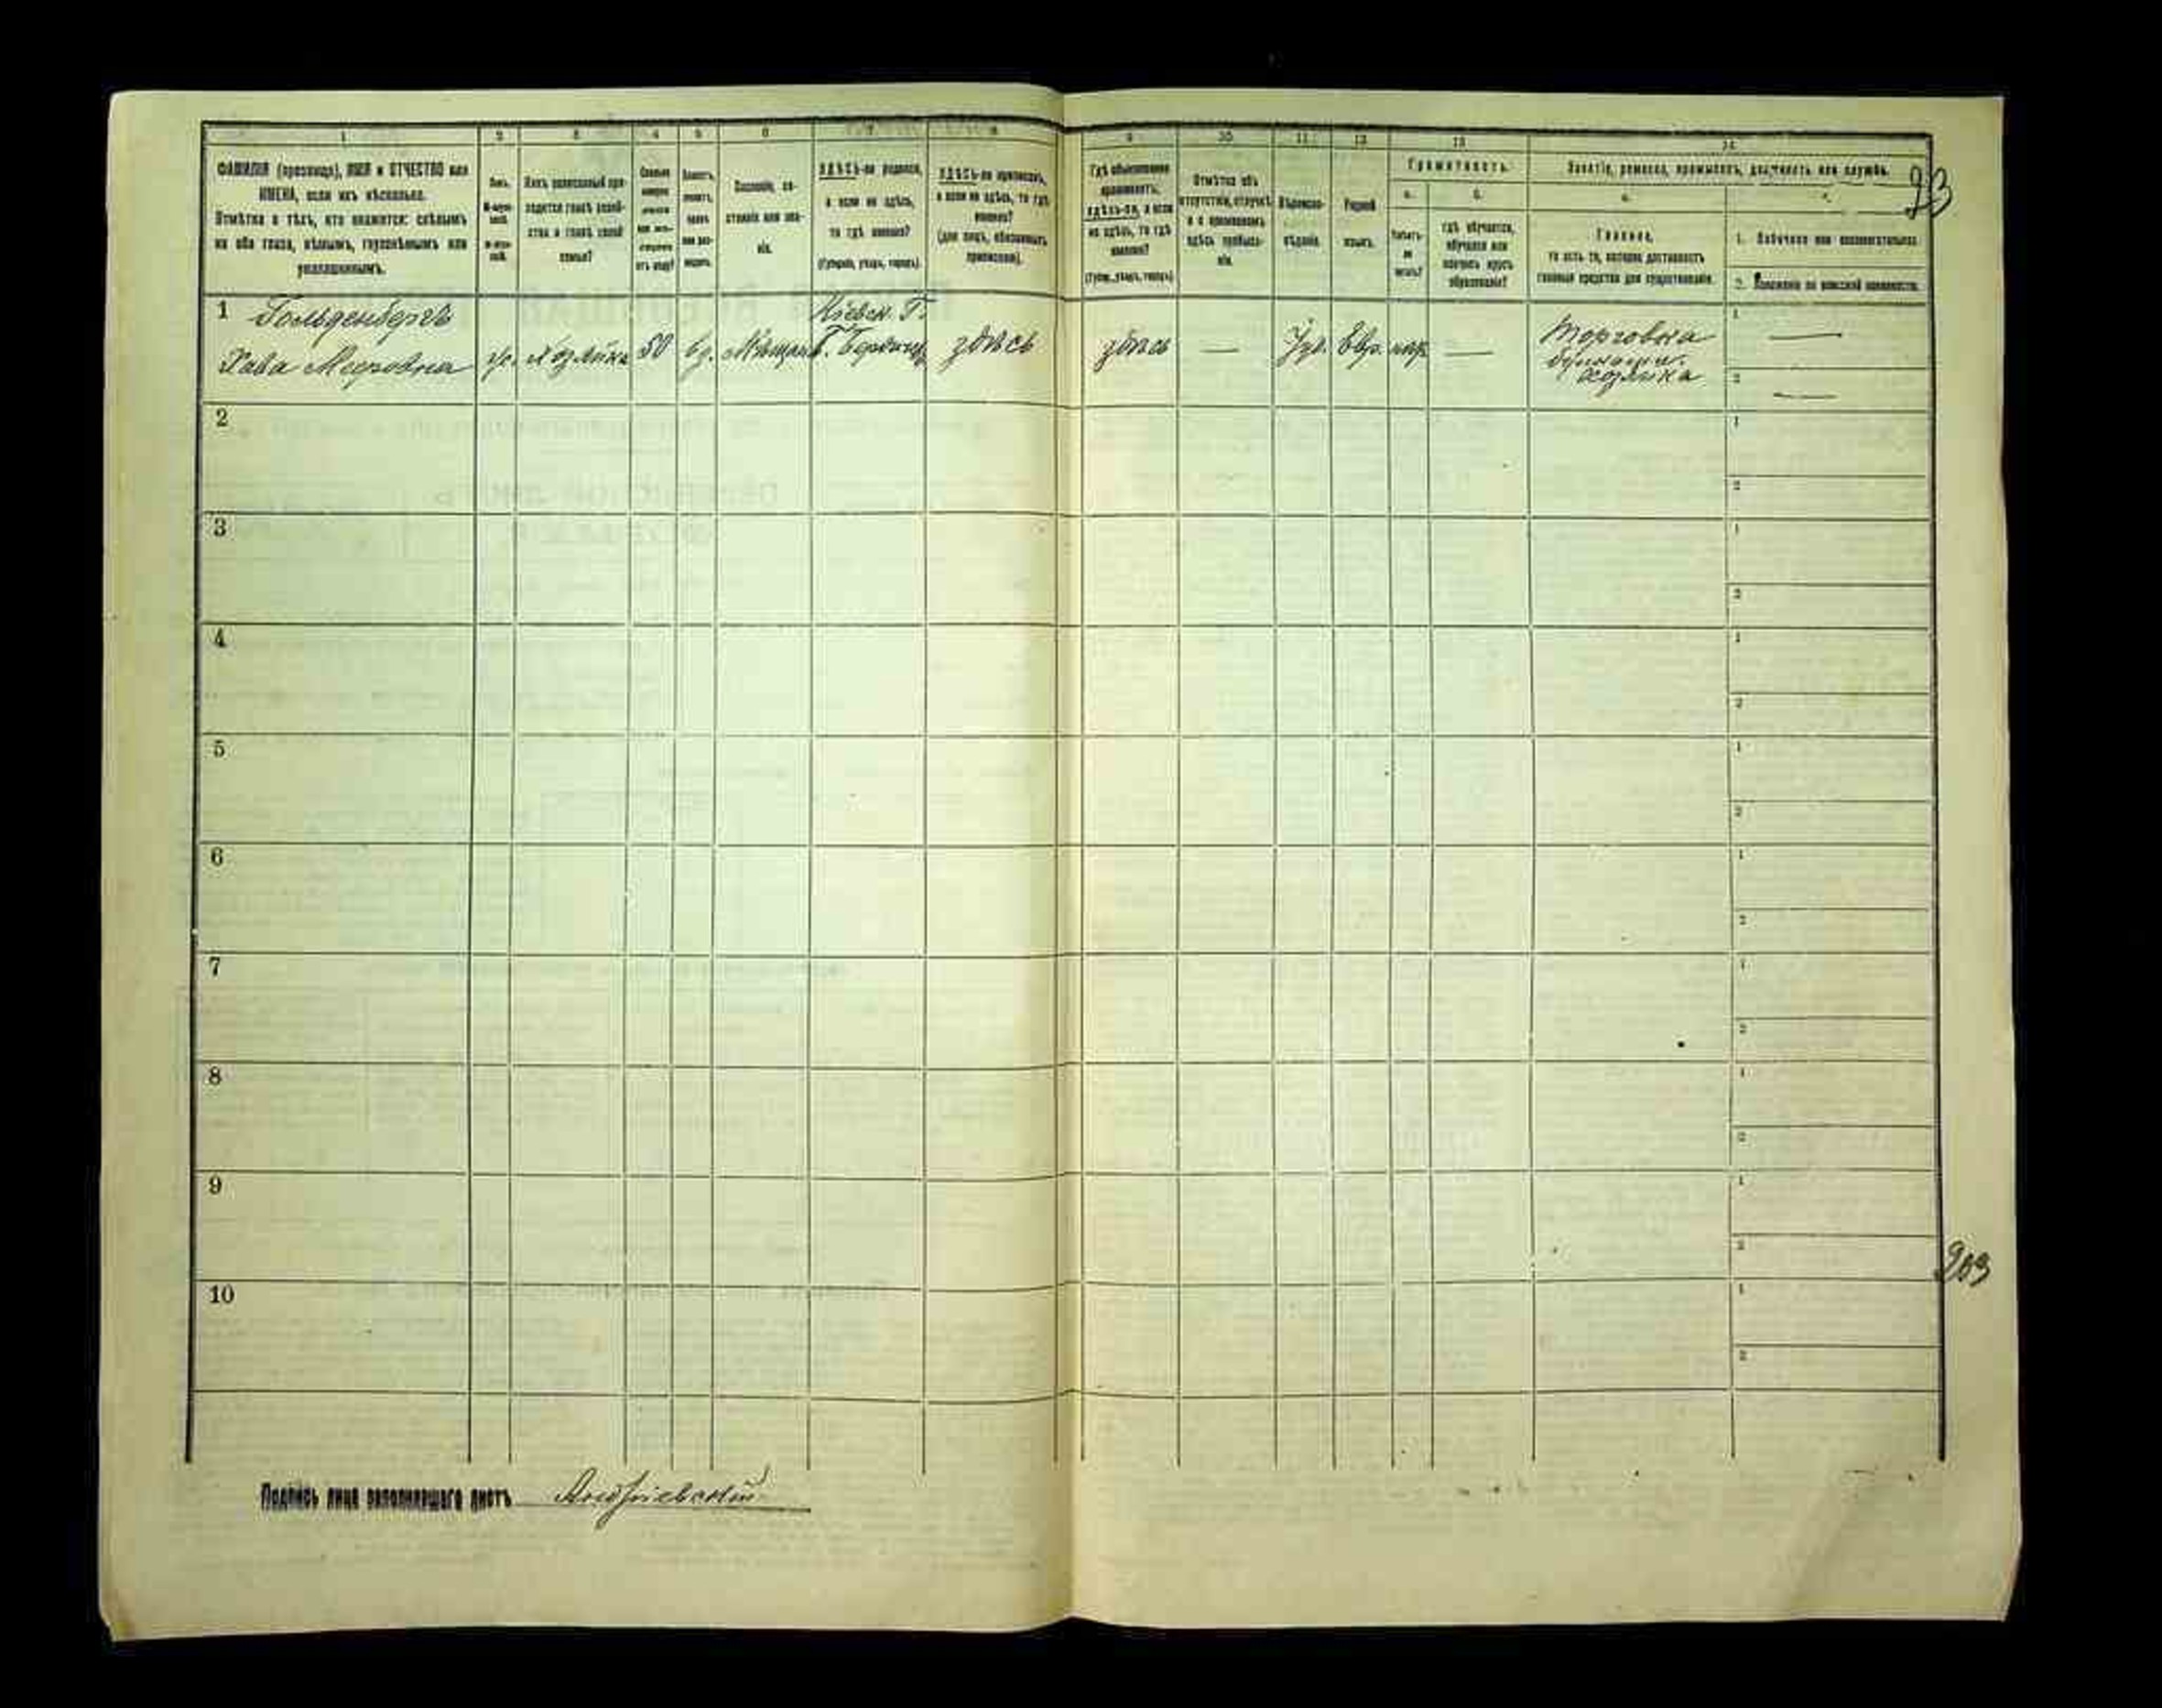 1 2 3 4 5 6 7 8 9 10 11 12 13 14
ФАМИЛІЯ (прозвище), ИМЯ и ОТЧЕСТВО или
ИМЕНА, если ихъ нѣсколько.
Отмѣтка о тѣхъ, кто окажется: слѣпымъ
на оба глаза, нѣмымъ, глухонѣмымъ или
умалишеннымъ.
Полъ.
М-мужской.
Ж-женскій.
Какъ записанный приходится
главѣ хозяйства и главѣ своей
семьи?
Сословіе, состояніе или званіе.
ЗДѢСЬ-ли родился,
а если не здѣсь,
то гдѣ именно?
(Губернія, уѣздъ, городъ).
ЗДѢСЬ-ли приписанъ,
а если не здѣсь, то гдѣ
именно?
(для лицъ, обязанныхъ
припискою).
Гдѣ обыкновенно
проживаетъ,
здѣсь-ли, а если
не здѣсь, то гдѣ
именно?
(Губерн., уѣздъ, городъ).
Отмѣтка объ
отсутствіи, отлучкѣ
и о временномъ
здѣсь пребываніи.
Вѣроисповѣданіе.
Родной
языкъ.
Грамотность.
а.
Умѣетъ-
ли
читать?
б.
гдѣ обучается,
обучался или
кончилъ курсъ
образованія?
Занятіе, ремесло, промыселъ, должность или служба.
а.
Главное,
то есть то, которое доставляетъ
главныя средства для существованія.
1. Побочное или вспомогательное.
2. Положеніе по воинской повинности.
93
1 Гольденбергъ
Хава Мееровна
ж. хозяйка 50 вд. Мѣщан.
Кіевск. Г.
г. Бердичев
здѣсь здѣсь — Іуд. Евр. — 
Торговка
хозяйка
1 —
2 —
2 1
2
3 1
2
4 1
2
5 1
2
6 1
2
7 1
2
8 1
2
9 1
2
10 1
2
203
Подпись лица заполнившаго листъ Андріевскій